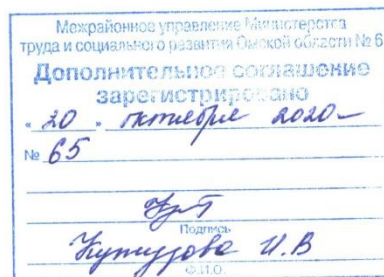 Межрайонное управление Министерства
труда и социального развития Омской области № 6
Дополнительное соглашение
зарегистрировано
« 20 » октября 2020
№ 65
Подпись
И.В
Ф.И.О.